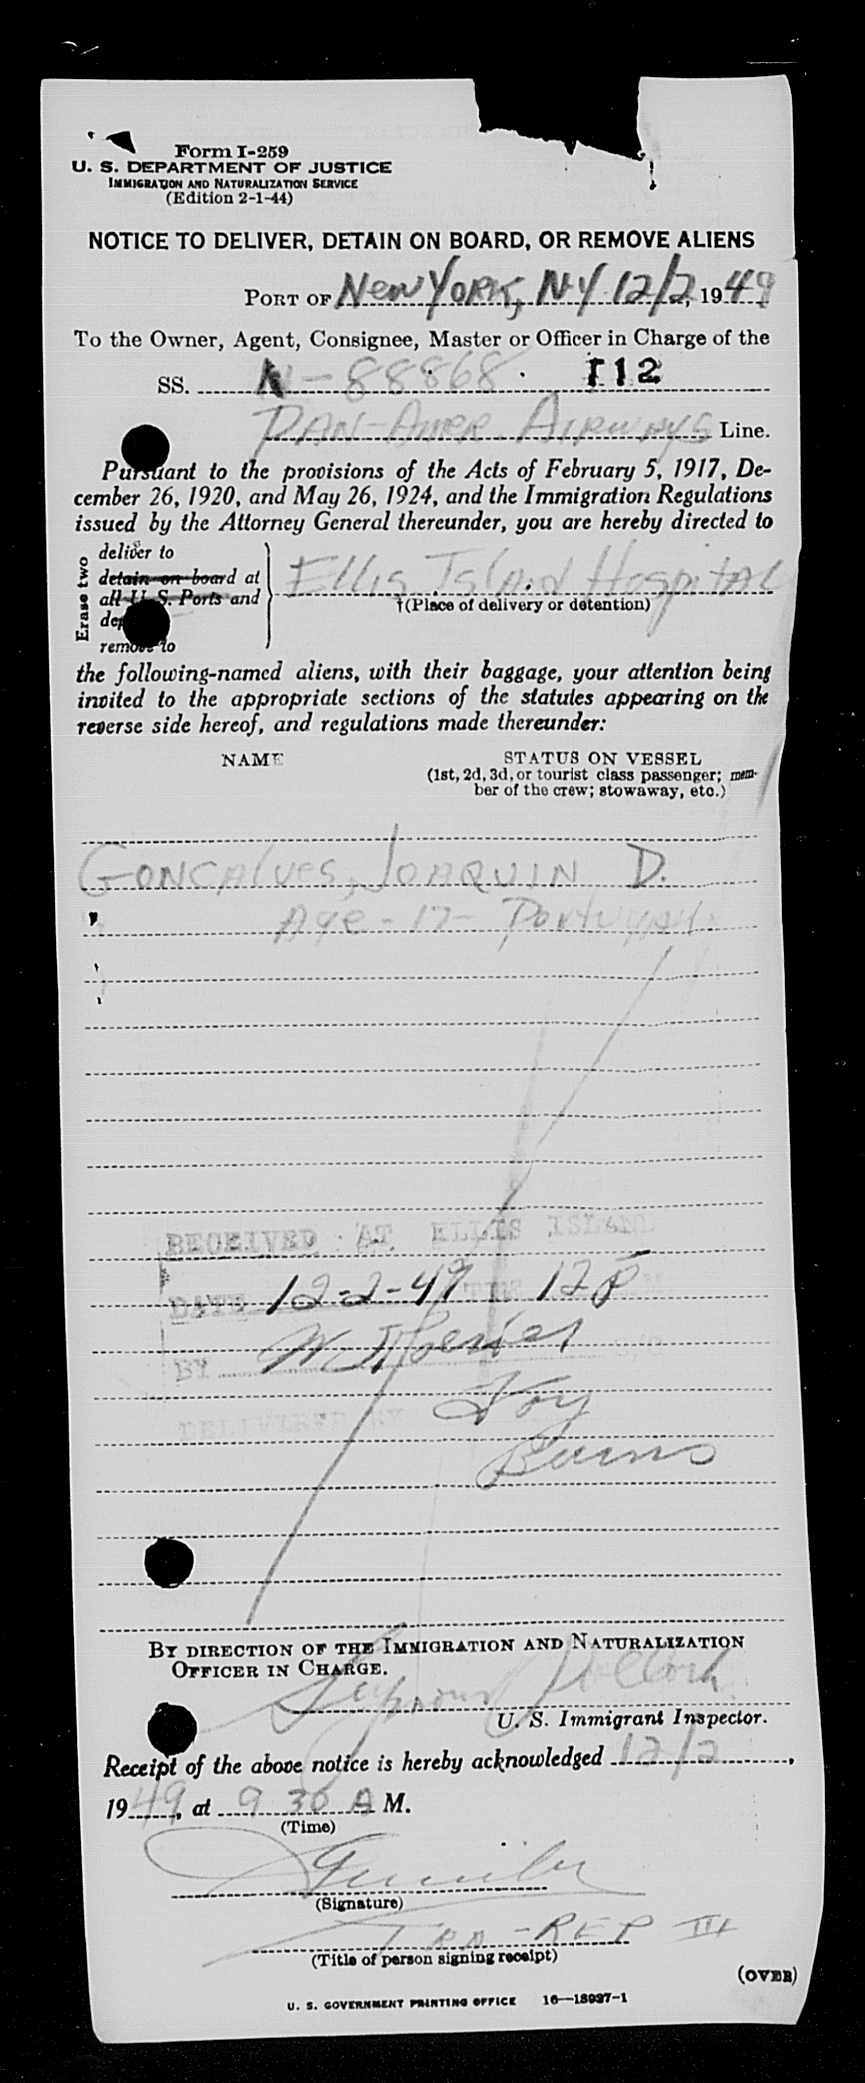 Form I-259
U. S. DEPARTMENT OF JUSTICE
IMMIGRATION AND NATURALIZATION SERVICE
(Edition 2-1-44)
NOTICE TO DELIVER, DETAIN ON BOARD, OR REMOVE ALIENS
PORT OF New York, NY 12/2, 1949
To the Owner, Agent, Consignee, Master or Officer in Charge of the
SS. N-88868 I12
PAN-AMER. AIRWAYS Line.
Pursuant to the provisions of the Acts of February 5, 1917, De-
cember 26, 1920, and May 26, 1924, and the Immigration Regulations
issued by the Attorney General thereunder, you are hereby directed to
Erase two
deliver to
detain on board at
all U. S. Ports and
remove to
Ellis Island Hospital
†(Place of delivery or detention)
the following-named aliens, with their baggage, your attention being
invited to the appropriate sections of the statutes appearing on the
reverse side hereof, and regulations made thereunder:
NAME STATUS ON VESSEL
(1st, 2d, 3d, or tourist class passenger; mem-
ber of the crew; stowaway, etc.)
GONCALVES, JOAQUIN D.
Age - 17 - Portugal
RECEIVED AT ELLIS ISLAND
DATE 12-2-49 12 P
BY
DELIVERED BY
Burns
BY DIRECTION OF THE IMMIGRATION AND NATURALIZATION
OFFICER IN CHARGE.
Seymour
U. S. Immigrant Inspector.
Receipt of the above notice is hereby acknowledged 12/2,
1949, at 9 30 A M.
(Time)
(Signature)
REP III
(Title of person signing receipt)
(OVER)
U. S. GOVERNMENT PRINTING OFFICE 16—18937-1